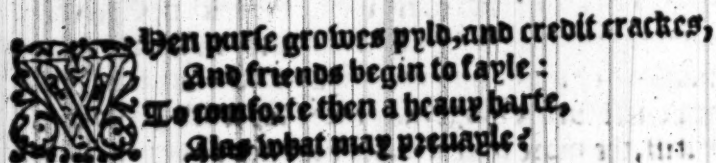 WHen purse growes pyld, and credit crackes,
And friends begin to fayle:
To comforte then a heauy harte,
Alas what may preuayle?